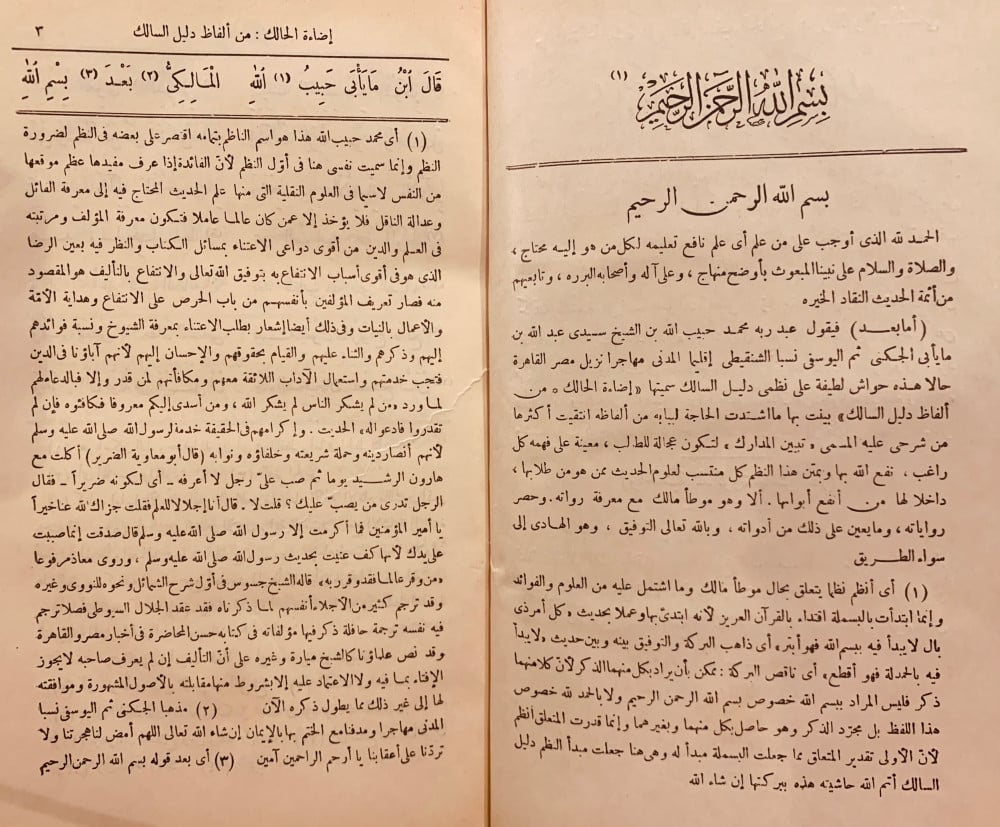 بِسْمِ اللهِ الرَّحْمٰنِ الرَّحِيمِ (١)
بسم الله الرحمن الرحيم
الحمد لله الذى أوجب على من علم أى علم نافع تعليمه لكل من هو إليه محتاج ،
والصلاة والسلام على نبينا المبعوث بأوضح منهاج ، وعلى آله وأصحابه البرره ، وتابعيهم
من أئمة الحديث النقاد الخيره
(أما بعد) فيقول عبد ربه محمد حبيب الله بن الشيخ سيدى عبد الله بن
مايأبى الجكنى ثم اليوسفى نسبا الشنقيطى إقليما المدنى مهاجرا نزيل مصر القاهرة
حالا هذه حواش لطيفة على نظمى دليل السالك سميتها «إضاءة الحالك ، من
ألفاظ دليل السالك» بينت بها ما اشتدت الحاجة لبيانه من ألفاظه انتقيت أكثرها
من شرحى عليه المسمى «تبيين المدارك» لتكون عجالة للطالب ، معينة على فهمه كل
راغب ، نفع الله بها وبمتن هذا النظم كل منتسب لعلوم الحديث ممن هو من طلابها ،
داخلا لها من أنفع أبوابها . ألا وهو موطأ مالك مع معرفة رواته . وحصر
رواياته ، وما يعين على ذلك من أدواته ، وبالله تعالى التوفيق ، وهو الهادى إلى
سواء الطريق
(١) أى أنظم نظما يتعلق بحال موطأ مالك وما اشتمل عليه من العلوم والفوائد
وإنما ابتدأت بالبسملة اقتداء بالقرآن العزيز لأنه ابتدئ بها وعملا بحديث «كل أمر ذى
بال لا يبدأ فيه ببسم الله فهو أبتر» أى ذاهب البركة والتوفيق بينه وبين حديث «لا يبدأ
فيه بالحمدلة فهو أقطع» أى ناقص البركة : ممكن بأن يراد بكل منهما الذكر لأن كلا منهما
ذكر فليس المراد ببسم الله خصوص بسم الله الرحمن الرحيم ولا بالحمد لله خصوص
هذا اللفظ بل مجرّد الذكر وهو حاصل بكل منهما وبغيرهما وإنما قدرت المتعلق أنظم
لأنّ الأولى تقدير المتعلق مما جعلت البسملة مبدأ له وهى هنا جعلت مبدأ النظم دليل
السالك أتم الله حاشيته هذه ببركتها إن شاء الله
إضاءة الحالك : من ألفاظ دليل السالك ٣
قَالَ ابْنُ مَايَأْبَى حَبِيبُ (١) اللهِ الْمَالِكِىُّ (٢) بَعْدَ (٣) بِسْمِ اللهِ
(١) أى محمد حبيب الله هذا هو اسم الناظم بتمامه اقتصر على بعضه فى النظم لضرورة
النظم وإنما سميت نفسى هنا فى أوّل النظم لأنّ الفائدة إذا عرف مفيدها عظم موقعها
من النفس لاسيما فى العلوم النقلية التى منها علم الحديث المحتاج فيه إلى معرفة القائل
وعدالة الناقل فلا يؤخذ إلا عمن كان عالما عاملا فتكون معرفة المؤلف ومرتبته
فى العلم والدين من أقوى دواعى الاعتناء بمسائل الكتاب والنظر فيه بعين الرضا
الذى هو فى أقوى أسباب الانتفاع به بتوفيق الله تعالى والانتفاع بالتأليف هو المقصود
منه فصار تعريف المؤلفين بأنفسهم من باب الحرص على الانتفاع وهداية الأمّة
والأعمال بالنيات وفى ذلك أيضا إشعار بطلب الاعتناء بمعرفة الشيوخ ونسبة فوائدهم
إليهم وذكرهم والثناء عليهم والقيام بحقوقهم والإحسان إليهم لأنهم آباؤنا فى الدين
فتجب خدمتهم واستعمال الآداب اللائقة معهم ومكافأتهم لمن قدر وإلا فبالدعاء لهم
لما ورد «من لم يشكر الناس لم يشكر الله ، ومن أسدى إليكم معروفا فكافئوه فإن لم
تقدروا فادعوا له» الحديث . وإكرامهم فى الحقيقة خدمة لرسول الله صلى الله عليه وسلم
لأنهم أنصار دينه وحملة شريعته وخلفاؤه ونوابه (قال أبو معاوية الضرير) أكلت مع
هارون الرشيد يوما ثم صب علىّ رجل لا أعرفه ـ أى لكونه ضريراً ـ فقال
الرجل تدرى من يصبّ عليك ؟ قلت لا . قال أنا إجلالا للعلم فقلت جزاك الله عنا خيراً
يا أمير المؤمنين فما أكرمت إلا رسول الله صلى الله عليه وسلم قال صدقت إنما صببت
على يدك لأنها كف عنيت بحديث رسول الله صلى الله عليه وسلم ، وروى معاذ مرفوعا
«من وقر عالما فقد وقر ربه» قاله الشيخ جسوس فى أوّل شرح الشمائل ونحوه للنووى وغيره
وقد ترجم كثير من الأجلاء أنفسهم لما ذكرناه فقد عقد الجلال السيوطى فصلا ترجم
فيه نفسه ترجمة حافلة ذكر فيها مؤلفاته فى كتابه حسن المحاضرة فى أخبار مصر والقاهرة
وقد نص علماؤنا كالشيخ ميارة وغيره على أنّ التأليف إن لم يعرف صاحبه لا يجوز
الإفتاء بما فيه ولا الاعتماد عليه إلا بشروط منها مقابلته بالأصول المشهورة وموافقته
لها إلى غير ذلك مما يطول ذكره الآن (٢) مذهبا الجكنى ثم اليوسفى نسبا
المدنى مهاجرا ومدفنا مع الختم بها بالإيمان إن شاء الله تعالى اللهم أمض لنا هجرتنا ولا
تردّنا على أعقابنا يا أرحم الراحمين آمين (٣) أى بعد قوله بسم الله الرحمن الرحيم